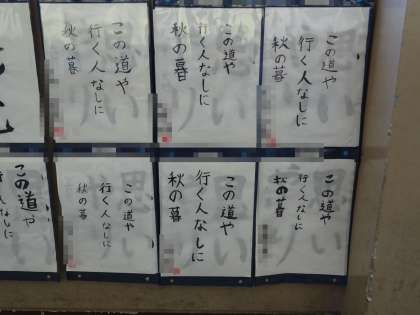 この道や
行く人なしに
秋の暮
この道や
行く人なしに
秋の暮
この道や
行く人なしに
秋の暮
この道や
行く人なしに
この道や
行く人なしに
秋の暮
この道や
行く人なしに
秋の暮
この道や
行く人なしに
秋の暮